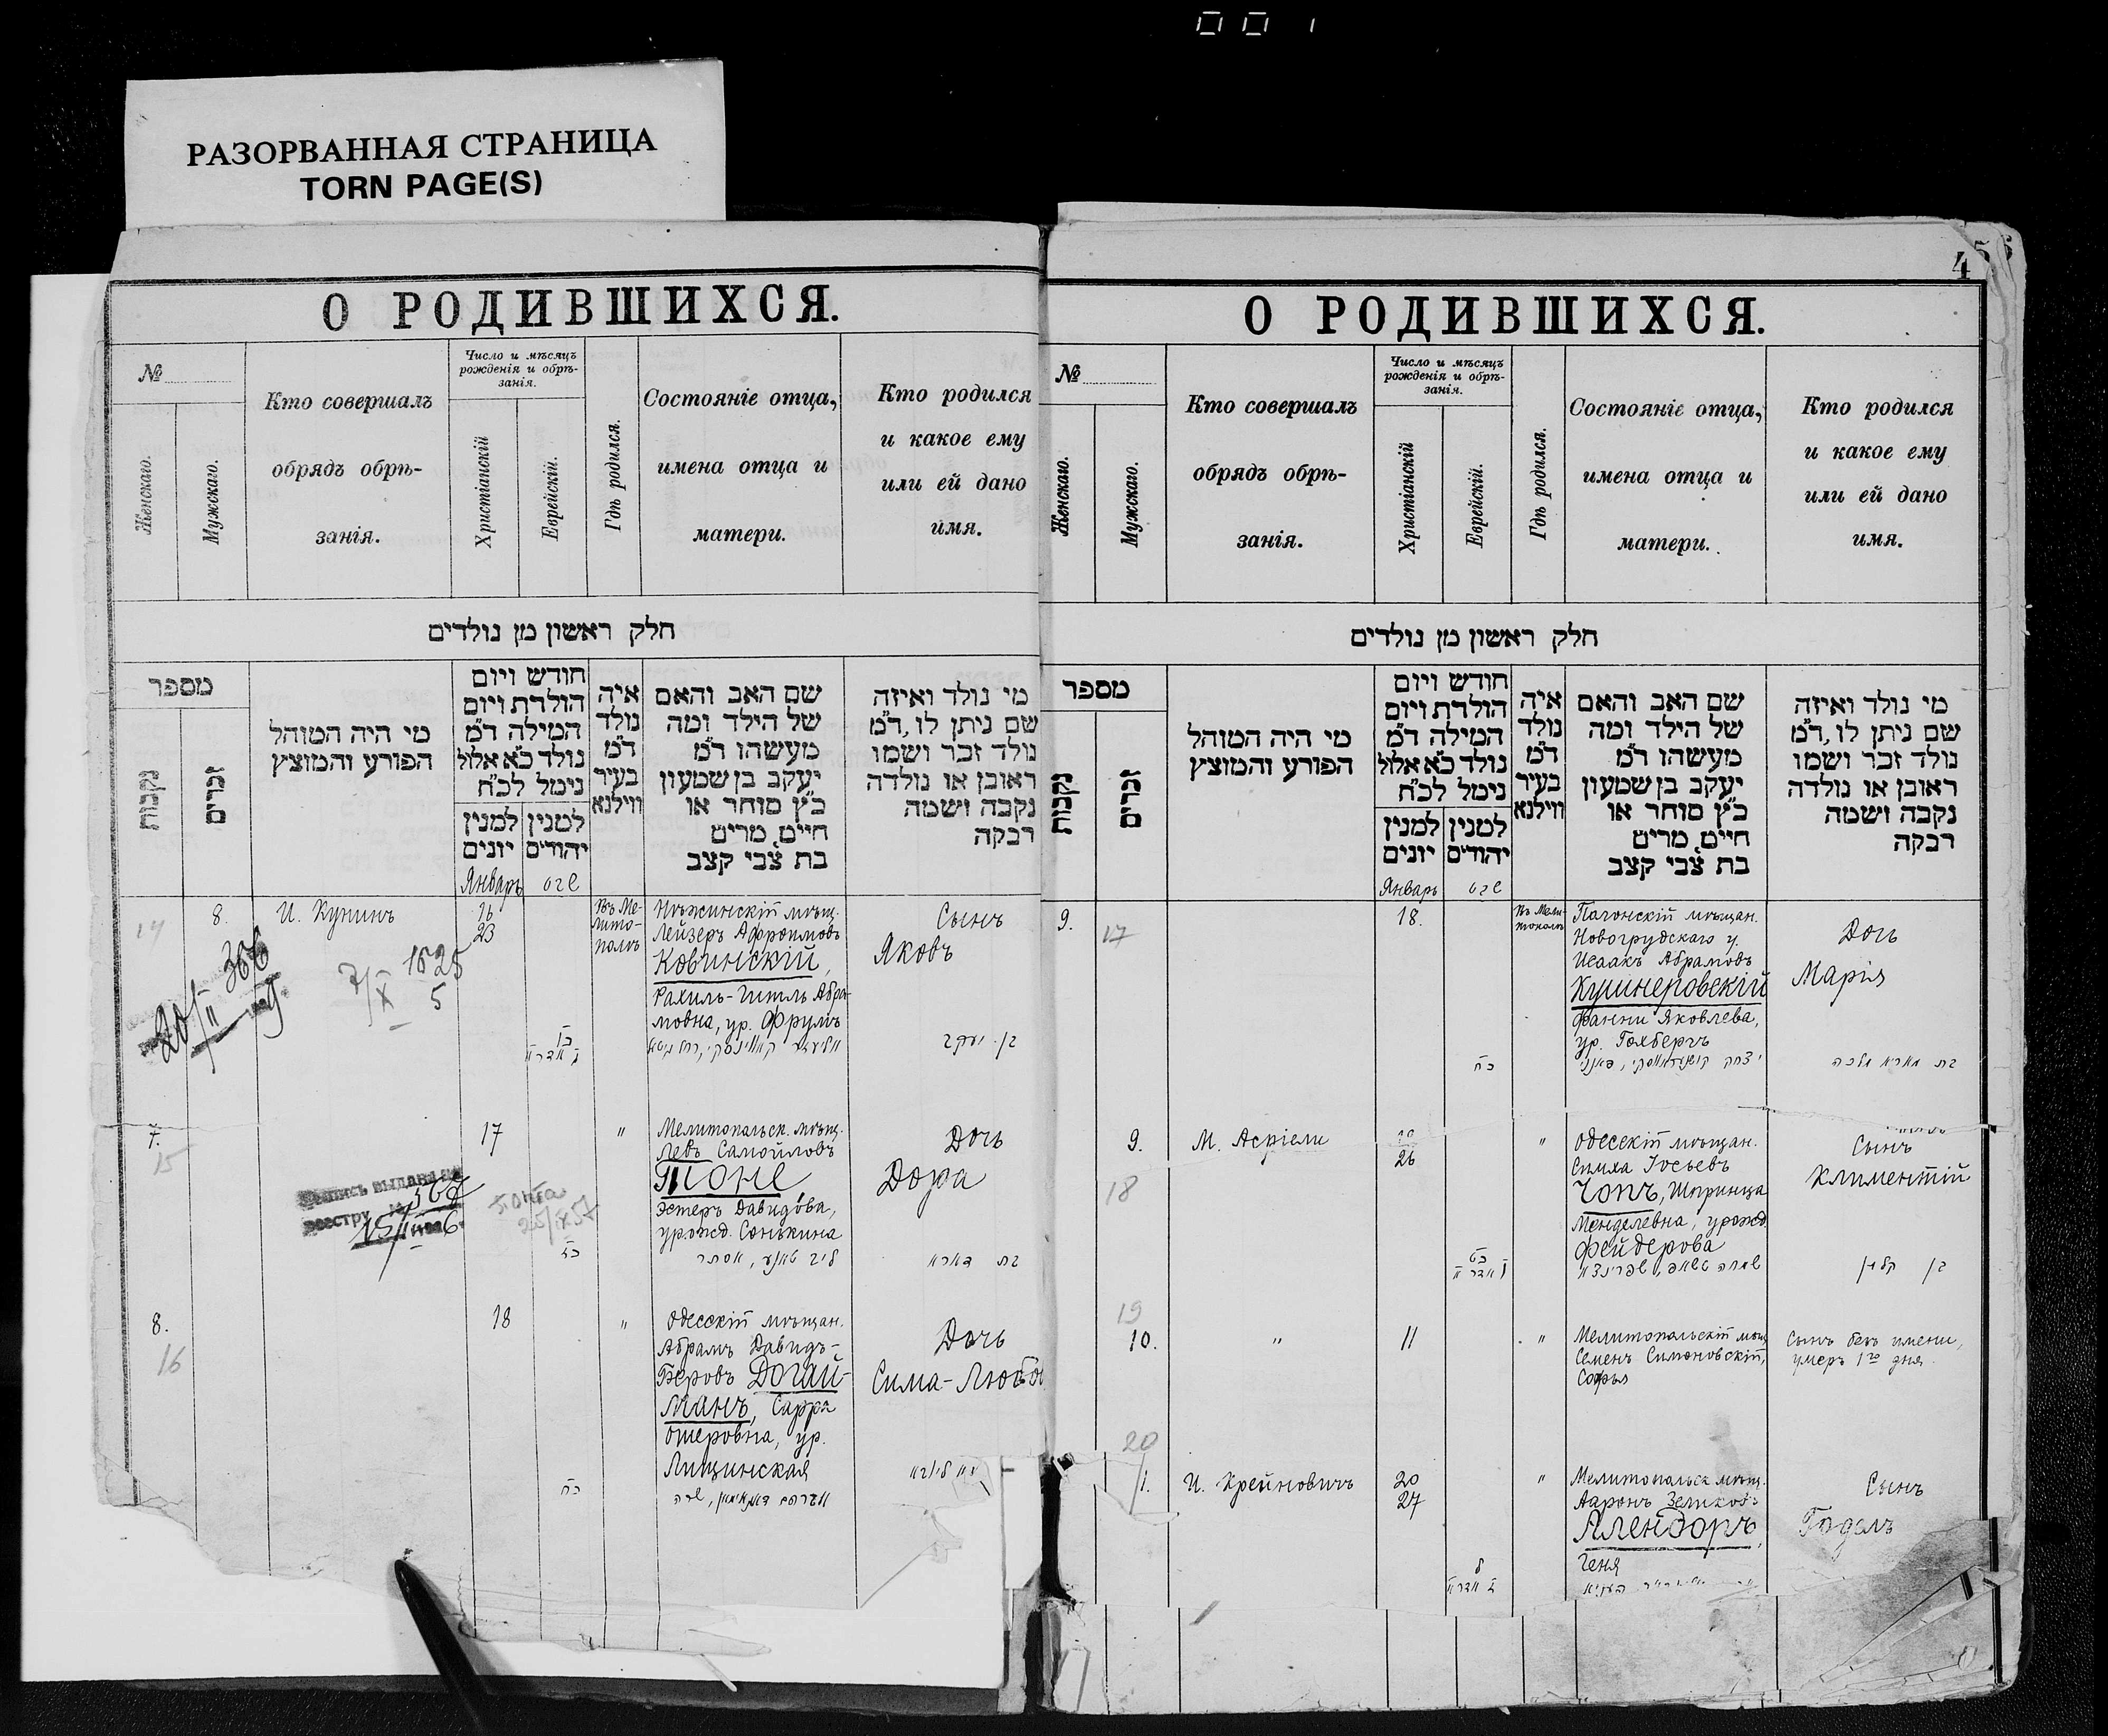 001
РАЗОРВАННАЯ СТРАНИЦА
TORN PAGE(S)
О РОДИВШИХСЯ.
№
Женскаго.
Мужскаго.
Кто совершалъ
обрядъ обрѣ-
занія.
Число и мѣсяцъ
рожденія и обрѣ-
занія.
Христіанскій
Еврейскій.
Гдѣ родился.
Состояніе отца,
имена отца и
матери.
Кто родился
и какое ему
или ей дано
имя.
חלק ראשון מן נולדים
מספר
נקבות
זכרים
מי היה המוהל
הפורע והמוצץ
חודש ויום
הולדת ויום
המילה ד"מ
נולד כ"א אלול
נימל לכ"ח
למנין
יונים
למנין
יהודים
איה
נולד
ד"מ
בעיר
ווילנא
שם האב והאם
של הילד ומה
מעשהו ד"מ
יעקב בן שמעון
כ"ץ סוחר או
חיים, מרים
בת צבי קצב
מי נולד ואיזה
שם ניתן לו, ד"מ
נולד זכר ושמו
ראובן או נולדה
נקבה ושמה
רבקה
Январь
שבט
14
8.
И. Кунинъ
16
23
Въ Ме-
лито-
полѣ
Нѣжинскій мѣщ.
Лейзеръ Афроимовъ
Ковинскій,
Рахиль-Гитль Абра-
мовна, ур. Фрумъ
Сынъ
Яковъ
בן יעקב
7.
15
17
"
Мелитопольск. мѣщ.
Левъ Самойловъ
Тоне
Эстеръ Давидова,
урожд. Сонькина
Дочь
Дора
בת דארא
8.
16
18
"
Одесскій мѣщан.
Абрамъ Давидъ-
Беровъ Догай-
манъ, Сарра
Ошеровна, ур.
Лищинская
כה
Дочь
Сима-Любовь
4
5
О РОДИВШИХСЯ.
№
Женскаго.
Мужскаго.
Кто совершалъ
обрядъ обрѣ-
занія.
Число и мѣсяцъ
рожденія и обрѣ-
занія.
Христіанскій
Еврейскій.
Гдѣ родился.
Состояніе отца,
имена отца и
матери.
Кто родился
и какое ему
или ей дано
имя.
חלק ראשון מן נולדים
מספר
נקבות
זכרים
מי היה המוהל
הפורע והמוצץ
חודש ויום
הולדת ויום
המילה ד"מ
נולד כ"א אלול
נימל לכ"ח
למנין
יונים
למנין
יהודים
איה
נולד
ד"מ
בעיר
ווילנא
שם האב והאם
של הילד ומה
מעשהו ד"מ
יעקב בן שמעון
כ"ץ סוחר או
חיים, מרים
בת צבי קצב
מי נולד ואיזה
שם ניתן לו, ד"מ
נולד זכר ושמו
ראובן או נולדה
נקבה ושמה
רבקה
Январь
שבט
9.
17
18.
Въ Мели-
тополѣ
мѣщан.
Новогрудскаго у.
Исаакъ Абрамовъ
Кушнеровскій
Фанни Яковлева,
ур. Голбергъ
כה
Дочь
Марія
9.
18
М. Асріели
26
"
Одесскій мѣщан.
Симха Іосьевъ
Чопъ, Шпринца
Менделевна, урожд.
Фейдерова
Сынъ
Климентій
19
10.
"
11
"
Мелитопольскій мѣщ.
Семенъ Симоновскій,
Софья
Сынъ безъ имени,
умеръ 1го дня.
20
И. Крейновичъ
20
27
"
Мелитопольск. мѣщ.
Ааронъ Зеликовъ
Алендоръ,
Геня
Сынъ
Годель